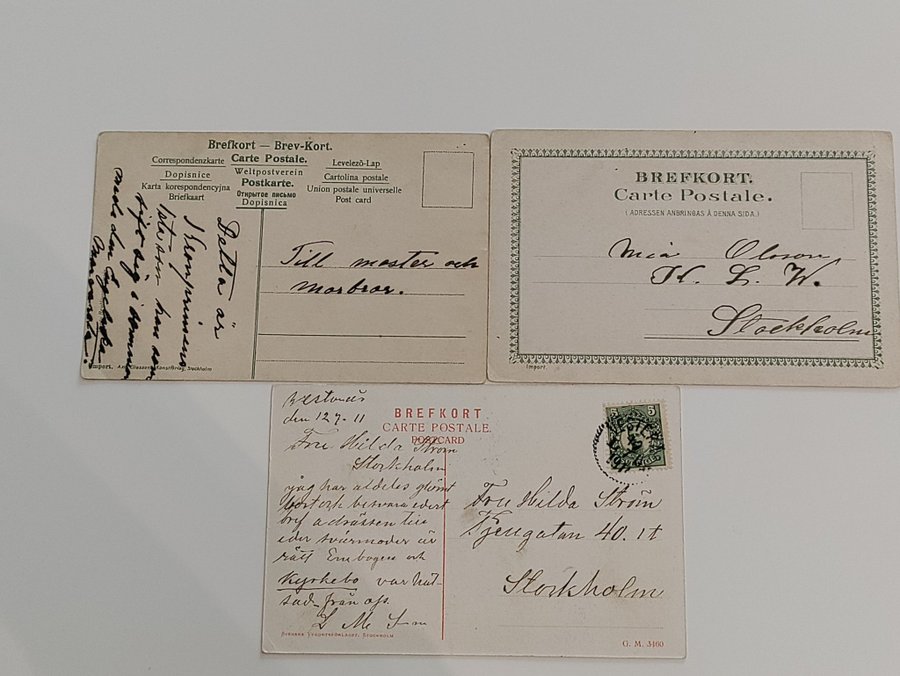 Brefkort — Brev-Kort.
Correspondenzkarte Carte Postale. Levelezõ-Lap
Dopisnice Weltpostverein Cartolina postale
Karta korespondencyjna Postkarte. Union postale universelle
Briefkaart Открытое письмо Post card
Dopisnica
Detta är
Kronprinsen
sig i
Till moster och
morbror.
Import. Stockholm
BREFKORT.
Carte Postale.
(ADRESSEN ANBRINGAS Å DENNA SIDA.)
Mia Olsson,
K. L. W.
Stockholm
Import
BREFKORT
CARTE POSTALE.
POSTCARD
den 12 7 - 11
Fru Hilda Ström
Stockholm
jag har aldeles glömt
bort och besvara edert
bref adrässen till
eder svärmoder är
rätt Enebogen och
Kyrkebo var häl-
sad från oss.
L M S-m
5 5
Fru Hilda Ström
40. 1t
Stockholm
STOCKHOLM
G. M. 3460